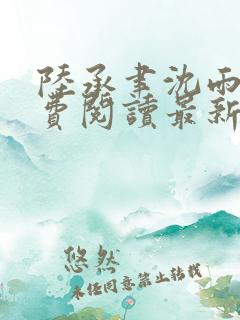 陸承聿沈雨
費閱讀最新
悠然
未经同意禁止转载